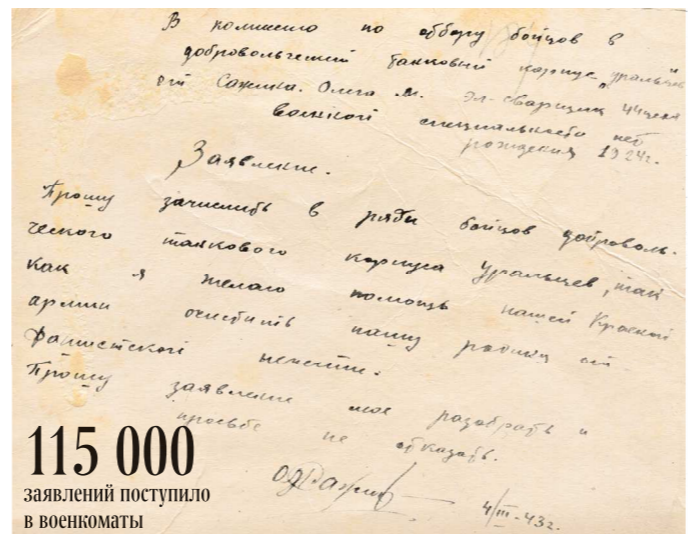 В комисию по отбору бойцов в
добровольческий танковый корпус "уральцев"
Сажина. Олега М. Эл-сварщик 44 цеха
воинской специальности нет
рождения 1924г.
Заявление.
Прошу зачислить в ряды бойцов доброволь-
ческого танкового корпуса уральцев, так
как я желаю помощь нашей Красной
армии очистить нашу родину от
фашистской нечисти.
Прошу заявление мое разобрать и
просьбе не отказать.
4/III-43г.
115 000
заявлений поступило
в военкоматы